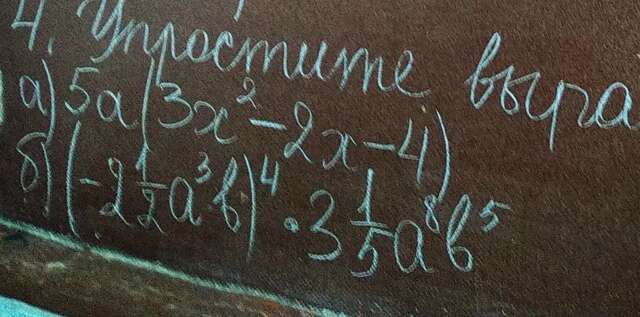 4. Упростите выра
а) 5a(3x² - 2x - 4)
б) (-2 1/2 a³b)⁴ · 3 1/5 a⁸b⁵